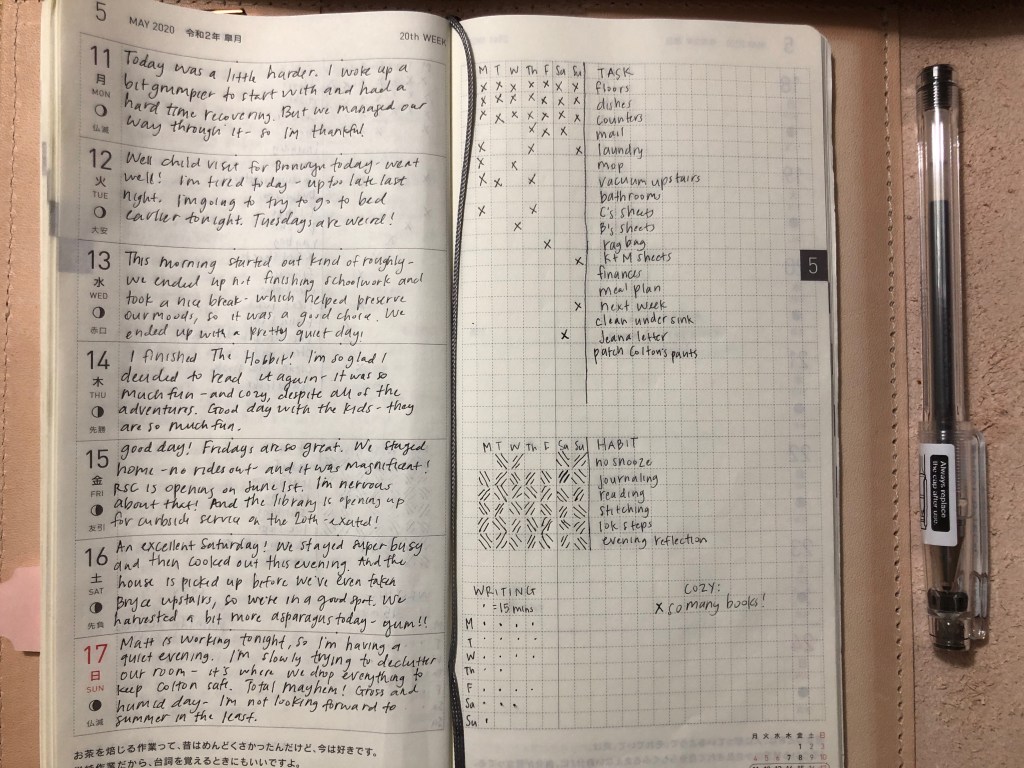 5 MAY 2020 令和2年 皐月 20th WEEK
11 月 MON 仏滅
Today was a little harder. I woke up a
bit grumpier to start with and had a
hard time recovering. But we managed our
way through it - so I'm thankful.
12 火 TUE 大安
Well child visit for Bronwyn today - went
well! I'm tired today - up too late last
night. I'm going to try to go to bed
earlier tonight. Tuesdays are weird!
13 水 WED 赤口
This morning started out kind of roughly -
we ended up not finishing schoolwork and
took a nice break - which helped preserve
our moods, so it was a good choice. We
ended up with a pretty quiet day!
14 木 THU 先勝
I finished The Hobbit! I'm so glad I
decided to read it again - it was so
much fun - and cozy, despite all of the
adventures. Good day with the kids - they
are so much fun.
15 金 FRI 友引
good day! Fridays are so great. We stayed
home - no rides out - and it was magnificent!
RSC is opening on June 1st. I'm nervous
about that! And the library is opening up
for curbside service on the 20th - excited!
16 土 SAT 先負
An excellent Saturday! We stayed super busy
and then cooked out this evening. And the
house is picked up before we've even taken
Bryce upstairs, so we're in a good spot. We
harvested a bit more asparagus today - yum!!
17 日 SUN 仏滅
Matt is working tonight, so I'm having a
quiet evening. I'm slowly trying to declutter
our room - it's where we drop everything to
keep Colton safe. Total mayhem! Gross and
humid day - I'm not looking forward to
summer in the least.
お茶を焙じる作業って、昔はめんどくさかったんだけど、今は好きです。
作業だから、台詞を覚えるときにもいいですよ。
M T W Th F Sa Su TASK
x x x x x x x floors
x x x x x x x dishes
x x x x x x x counters
x x x mail
x x x laundry
x x mop
x x x vacuum upstairs
bathroom
x x C's sheets
x B's sheets
x rag bag
x K+M sheets
finances
meal plan
x next week
clean under sink
x Jeana letter
patch Colton's pants
5
M T W Th F Sa Su HABIT
no snooze
journaling
reading
stitching
10k steps
evening reflection
WRITING
• = 15 mins
M • • • •
T • • • •
W • • •
Th •
F • • • •
Sa • • •
Su •
COZY:
x so many books!
月 火 水 木 金 土 日
1 2 3
4 5 6 7 8 9 10
Always replace
the cap after use.